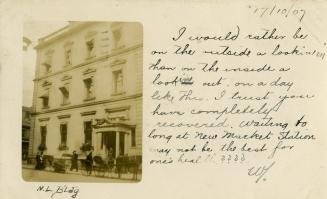 17/10/07
I would rather be
on the outside a lookin' in
than on the inside a
lookin' out, on a day
like this. I trust you
have completely
recovered. Waiting to
long at New Market Station
may not be the best for
one's heal th. ????
W.
N.L. Bldg